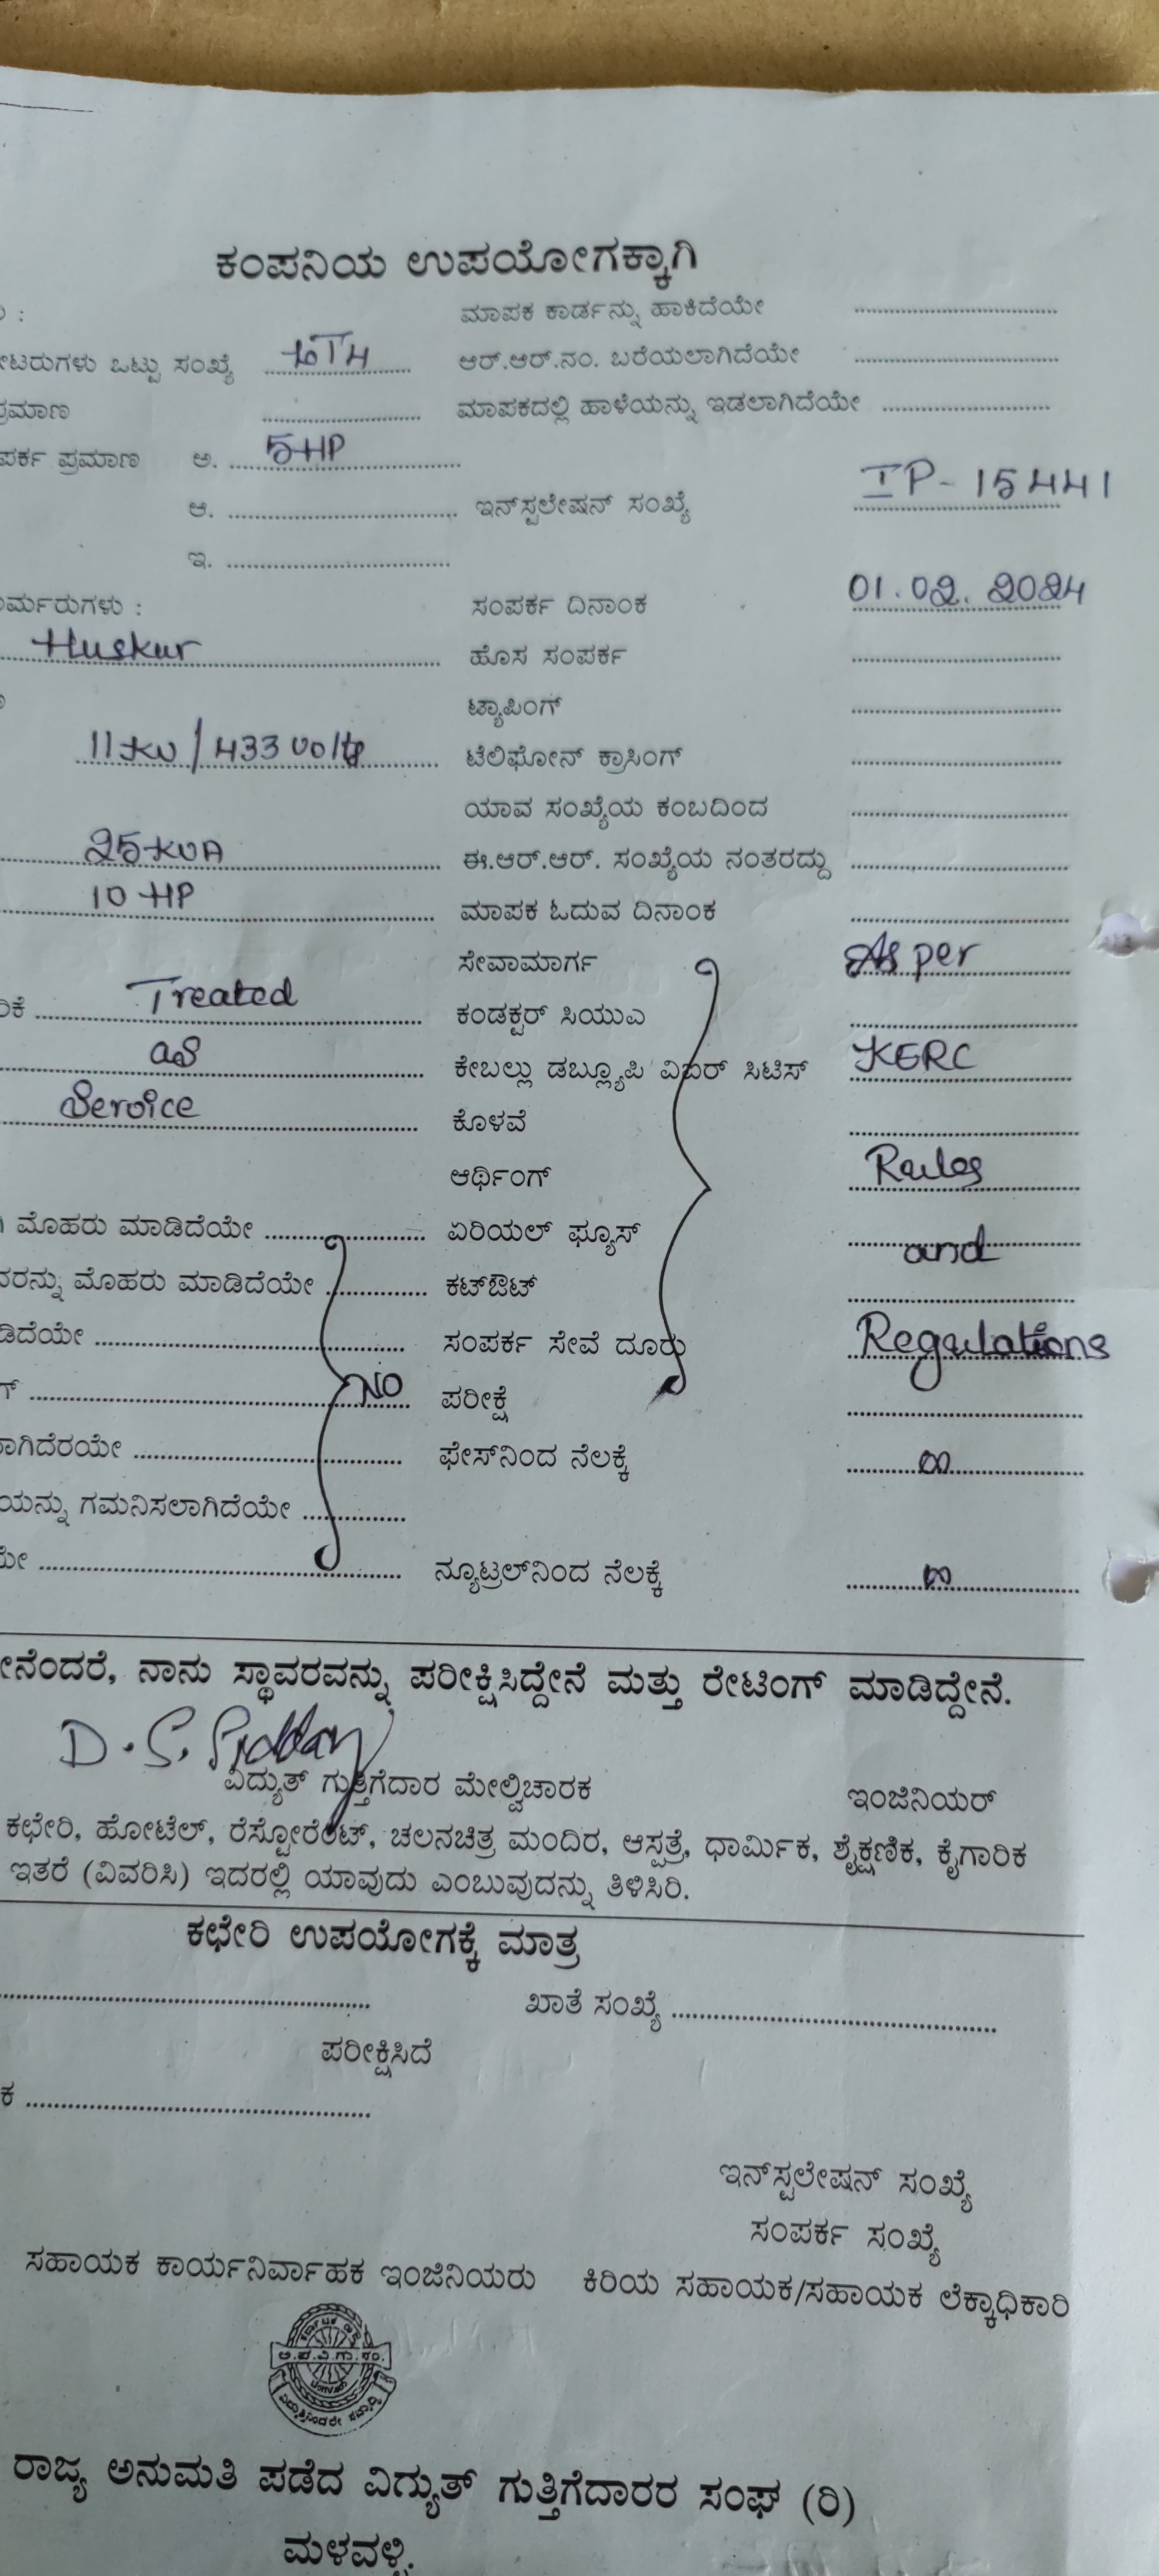 ಕಂಪನಿಯ ಉಪಯೋಗಕ್ಕಾಗಿ
ಮಾಪಕ ಕಾರ್ಡನ್ನು ಹಾಕಿದೆಯೇ
ಟರುಗಳು ಒಟ್ಟು ಸಂಖ್ಯೆ ಆರ್.ಆರ್.ನಂ. ಬರೆಯಲಾಗಿದೆಯೇ
ಪ್ರಮಾಣ ಮಾಪಕದಲ್ಲಿ ಹಾಳೆಯನ್ನು ಇಡಲಾಗಿದೆಯೇ
ಪರ್ಕ ಪ್ರಮಾಣ ಅ. 5HP
ಆ. ಇನ್‌ಸ್ಟಲೇಷನ್ ಸಂಖ್ಯೆ IP-15441
ಇ.
ರ್ಮರುಗಳು : ಸಂಪರ್ಕ ದಿನಾಂಕ 01.02.2024
Huskur ಹೊಸ ಸಂಪರ್ಕ
ಟ್ಯಾಪಿಂಗ್
11kv/433 volts ಟೆಲಿಫೋನ್ ಕ್ರಾಸಿಂಗ್
ಯಾವ ಸಂಖ್ಯೆಯ ಕಂಬದಿಂದ
25 KVA ಈ.ಆರ್.ಆರ್. ಸಂಖ್ಯೆಯ ನಂತರದ್ದು
10 HP ಮಾಪಕ ಓದುವ ದಿನಾಂಕ
ಸೇವಾಮಾರ್ಗ As per
ರಿಕೆ Treated ಕಂಡಕ್ಟರ್ ಸಿಯುಎ
as ಕೇಬಲ್ಲು ಡಬ್ಲ್ಯೂಪಿ ವಿಐರ್ ಸಿಟಿಸ್ KERC
Service ಕೊಳವೆ
ಆರ್ಥಿಂಗ್ Rules
ಮೊಹರು ಮಾಡಿದೆಯೇ ಏರಿಯಲ್ ಫ್ಯೂಸ್ and
ವರನ್ನು ಮೊಹರು ಮಾಡಿದೆಯೇ ಕಟ್‌ಔಟ್
ಡಿದೆಯೇ ಸಂಪರ್ಕ ಸೇವೆ ದೂರು Regulations
NO ಪರೀಕ್ಷೆ
ಾಗಿದೆರಯೇ ಫೇಸ್‌ನಿಂದ ನೆಲಕ್ಕೆ ∞
ಯನ್ನು ಗಮನಿಸಲಾಗಿದೆಯೇ
ನ್ಯೂಟ್ರಲ್‌ನಿಂದ ನೆಲಕ್ಕೆ ∞
ನೆಂದರೆ, ನಾನು ಸ್ಥಾವರವನ್ನು ಪರೀಕ್ಷಿಸಿದ್ದೇನೆ ಮತ್ತು ರೇಟಿಂಗ್ ಮಾಡಿದ್ದೇನೆ.
D.S.
ವಿದ್ಯುತ್ ಗುತ್ತಿಗೆದಾರ ಮೇಲ್ವಿಚಾರಕ ಇಂಜಿನಿಯರ್
ಕಛೇರಿ, ಹೋಟೆಲ್, ರೆಸ್ಟೋರೆಂಟ್, ಚಲನಚಿತ್ರ ಮಂದಿರ, ಆಸ್ಪತ್ರೆ, ಧಾರ್ಮಿಕ, ಶೈಕ್ಷಣಿಕ, ಕೈಗಾರಿಕ
ಇತರೆ (ವಿವರಿಸಿ) ಇದರಲ್ಲಿ ಯಾವುದು ಎಂಬುವುದನ್ನು ತಿಳಿಸಿರಿ.
ಕಛೇರಿ ಉಪಯೋಗಕ್ಕೆ ಮಾತ್ರ
ಖಾತೆ ಸಂಖ್ಯೆ
ಪರೀಕ್ಷಿಸಿದೆ
ಕ
ಇನ್‌ಸ್ಟಲೇಷನ್ ಸಂಖ್ಯೆ
ಸಂಪರ್ಕ ಸಂಖ್ಯೆ
ಸಹಾಯಕ ಕಾರ್ಯನಿರ್ವಾಹಕ ಇಂಜಿನಿಯರು ಕಿರಿಯ ಸಹಾಯಕ/ಸಹಾಯಕ ಲೆಕ್ಕಾಧಿಕಾರಿ
ರಾಜ್ಯ ಅನುಮತಿ ಪಡೆದ ವಿದ್ಯುತ್ ಗುತ್ತಿಗೆದಾರರ ಸಂಘ (ರಿ)
ಮಳವಳ್ಳಿ.